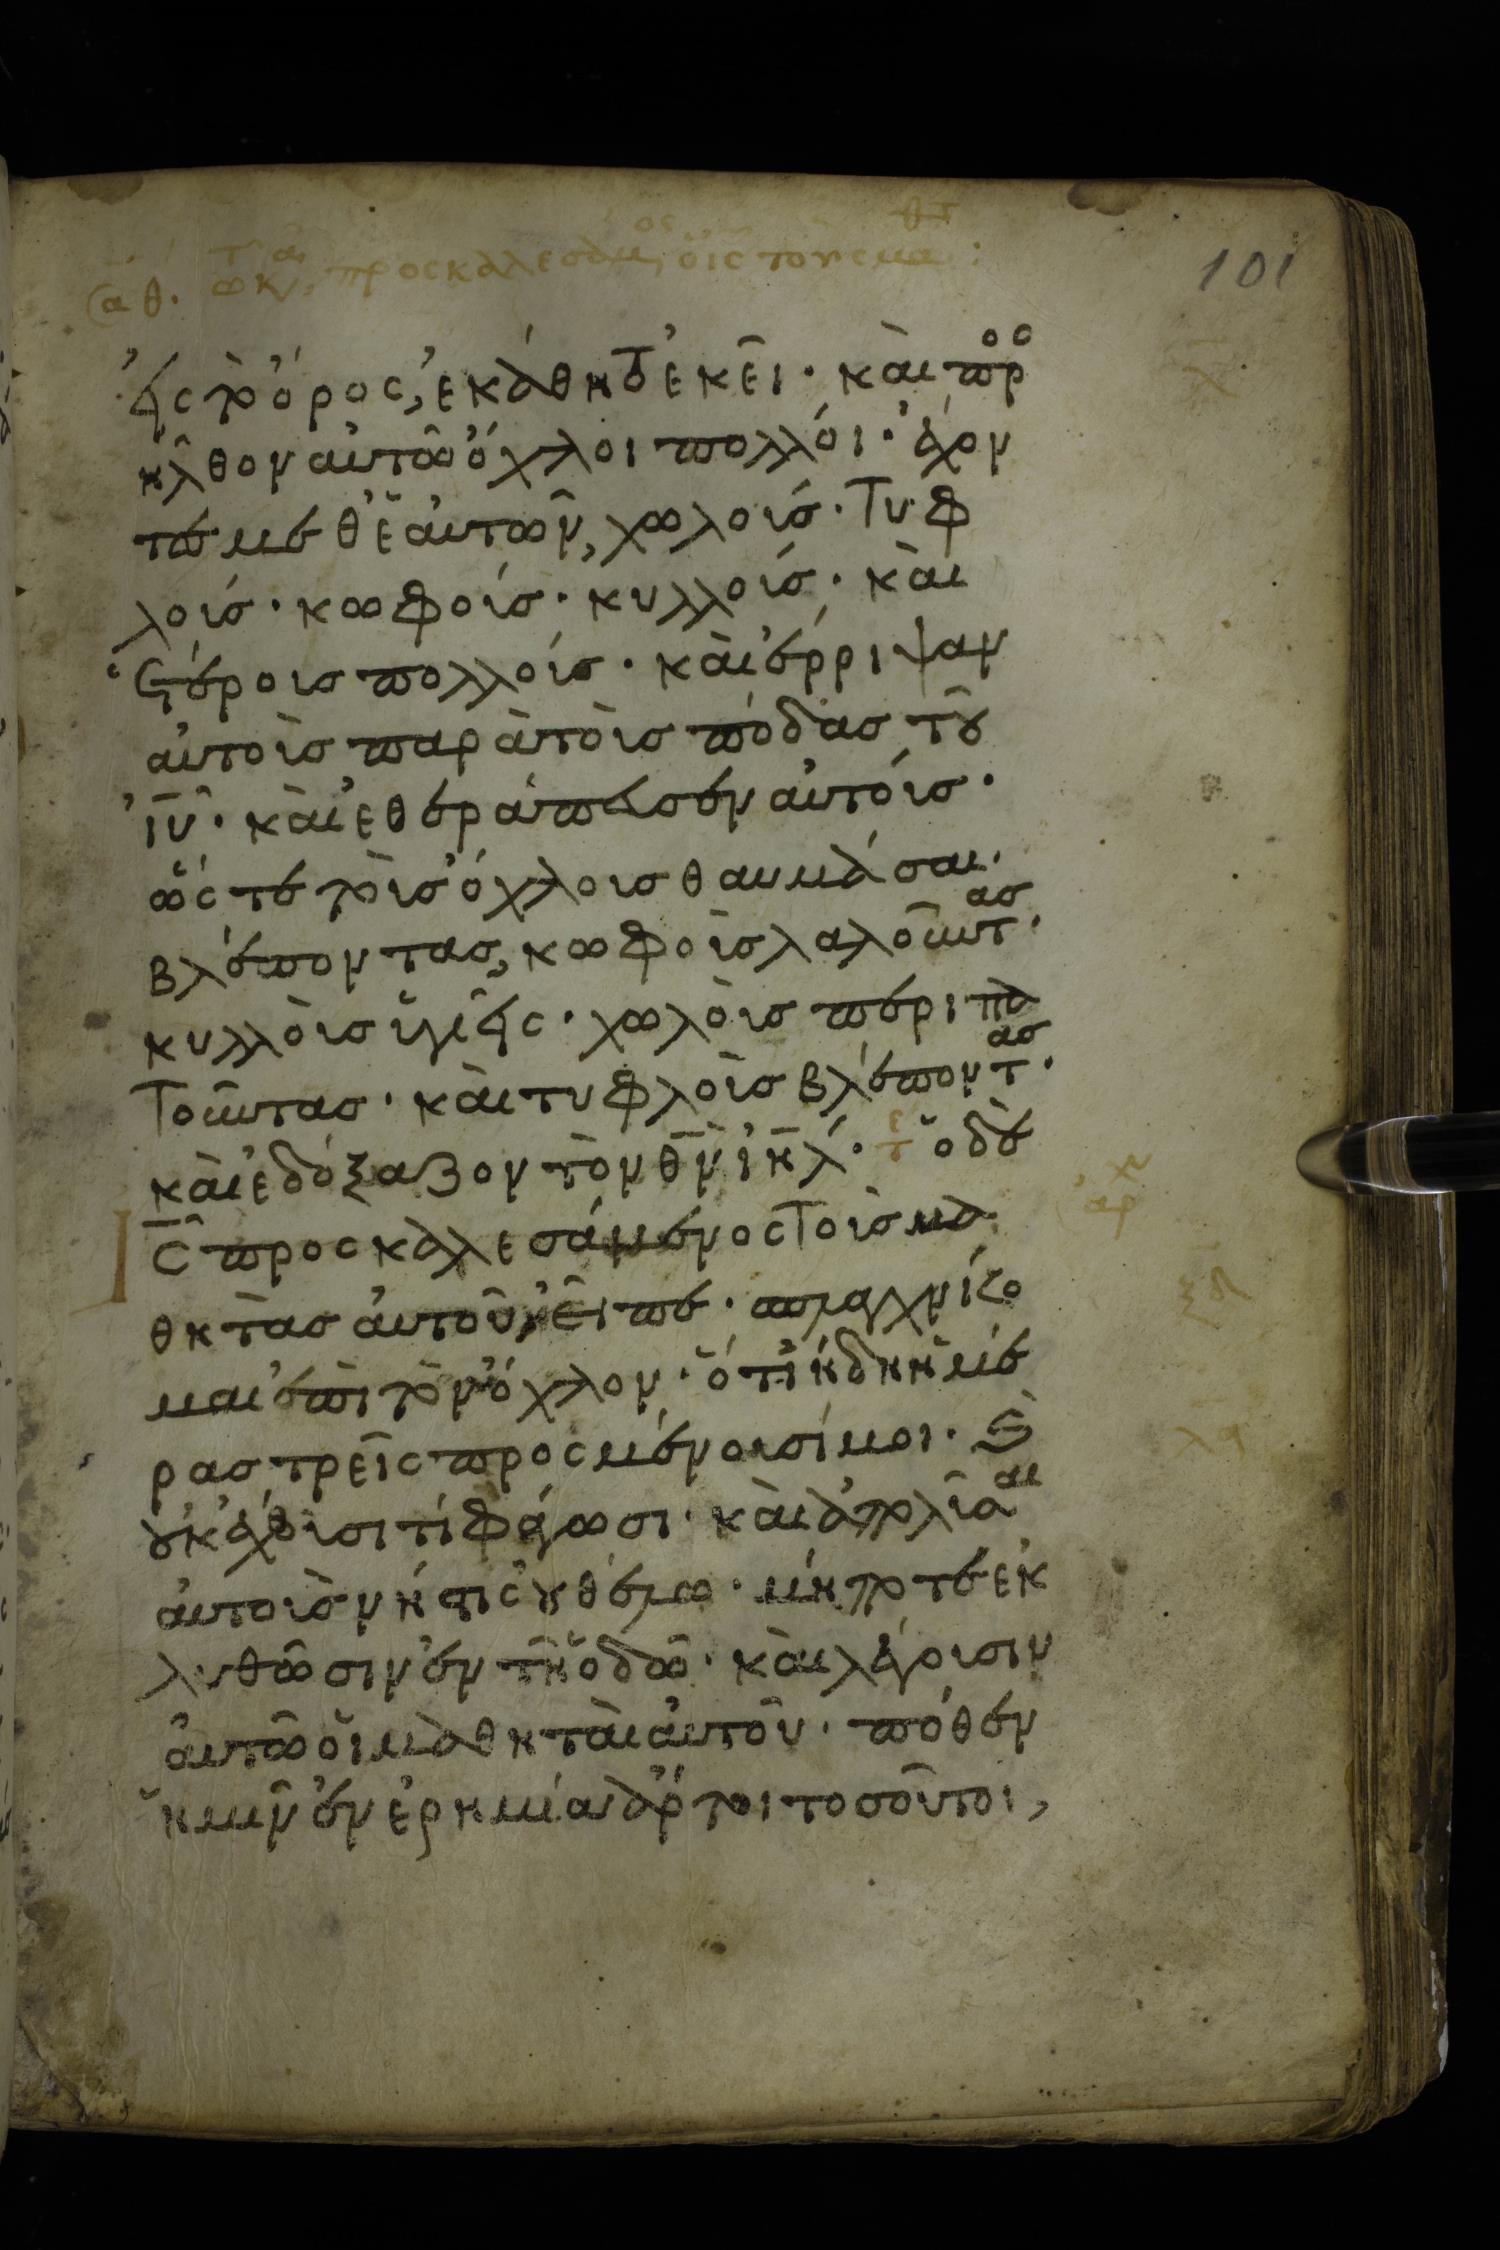 εἰς τὸ ὄρος, ἐκάθητο ἐκεῖ· καὶ προσ
ῆλθον αὐτῶ ὄχλοι πολλοί· ἔχον
τες μεθ' ἑαυτῶν, χωλούς· τυφ
λούς· κωφούς· κυλλούς· καὶ
ἑτέρους πολλούς· καὶ ἔρριψαν
αὐτοὺς παρὰ τοὺς πόδας τοῦ
ἰῦ· καὶ ἐθεράπευσεν αὐτούς·
ὥστε τοὺς ὄχλους θαυμάσαι·
βλέποντας, κωφοὺς λαλοῦντας·
κυλλοὺς ὑγιεῖς· χωλοὺς περιπα
τοῦντας· καὶ τυφλοὺς βλέποντας·
καὶ ἐδόξαζον τὸν θν ἰηλ· τε ὁ δὲ
Ις προσκαλεσάμενος τοὺς μα
θητὰς αὐτοῦ, εἶπε· σπλαγχνίζο
μαι ἐπὶ τὸν ὄχλον· ὅτι ἤδη ἡμέ
ρας τρεῖς προς μένουσί μοι· καὶ
οὐκ ἔχουσι τί φάγωσι· καὶ ἀπολῦσαι
αὐτοὺς νήστις οὐ θέλω· μήποτε ἐκ
λυθῶσιν ἐν τῆ ὁδῶ· καὶ λέγουσιν
αὐτῶ οἱ μαθηταὶ αὐτοῦ· πόθεν
ἡμῖν ἐν ἐρημία ἄρτοι τοσοῦτοι,
101